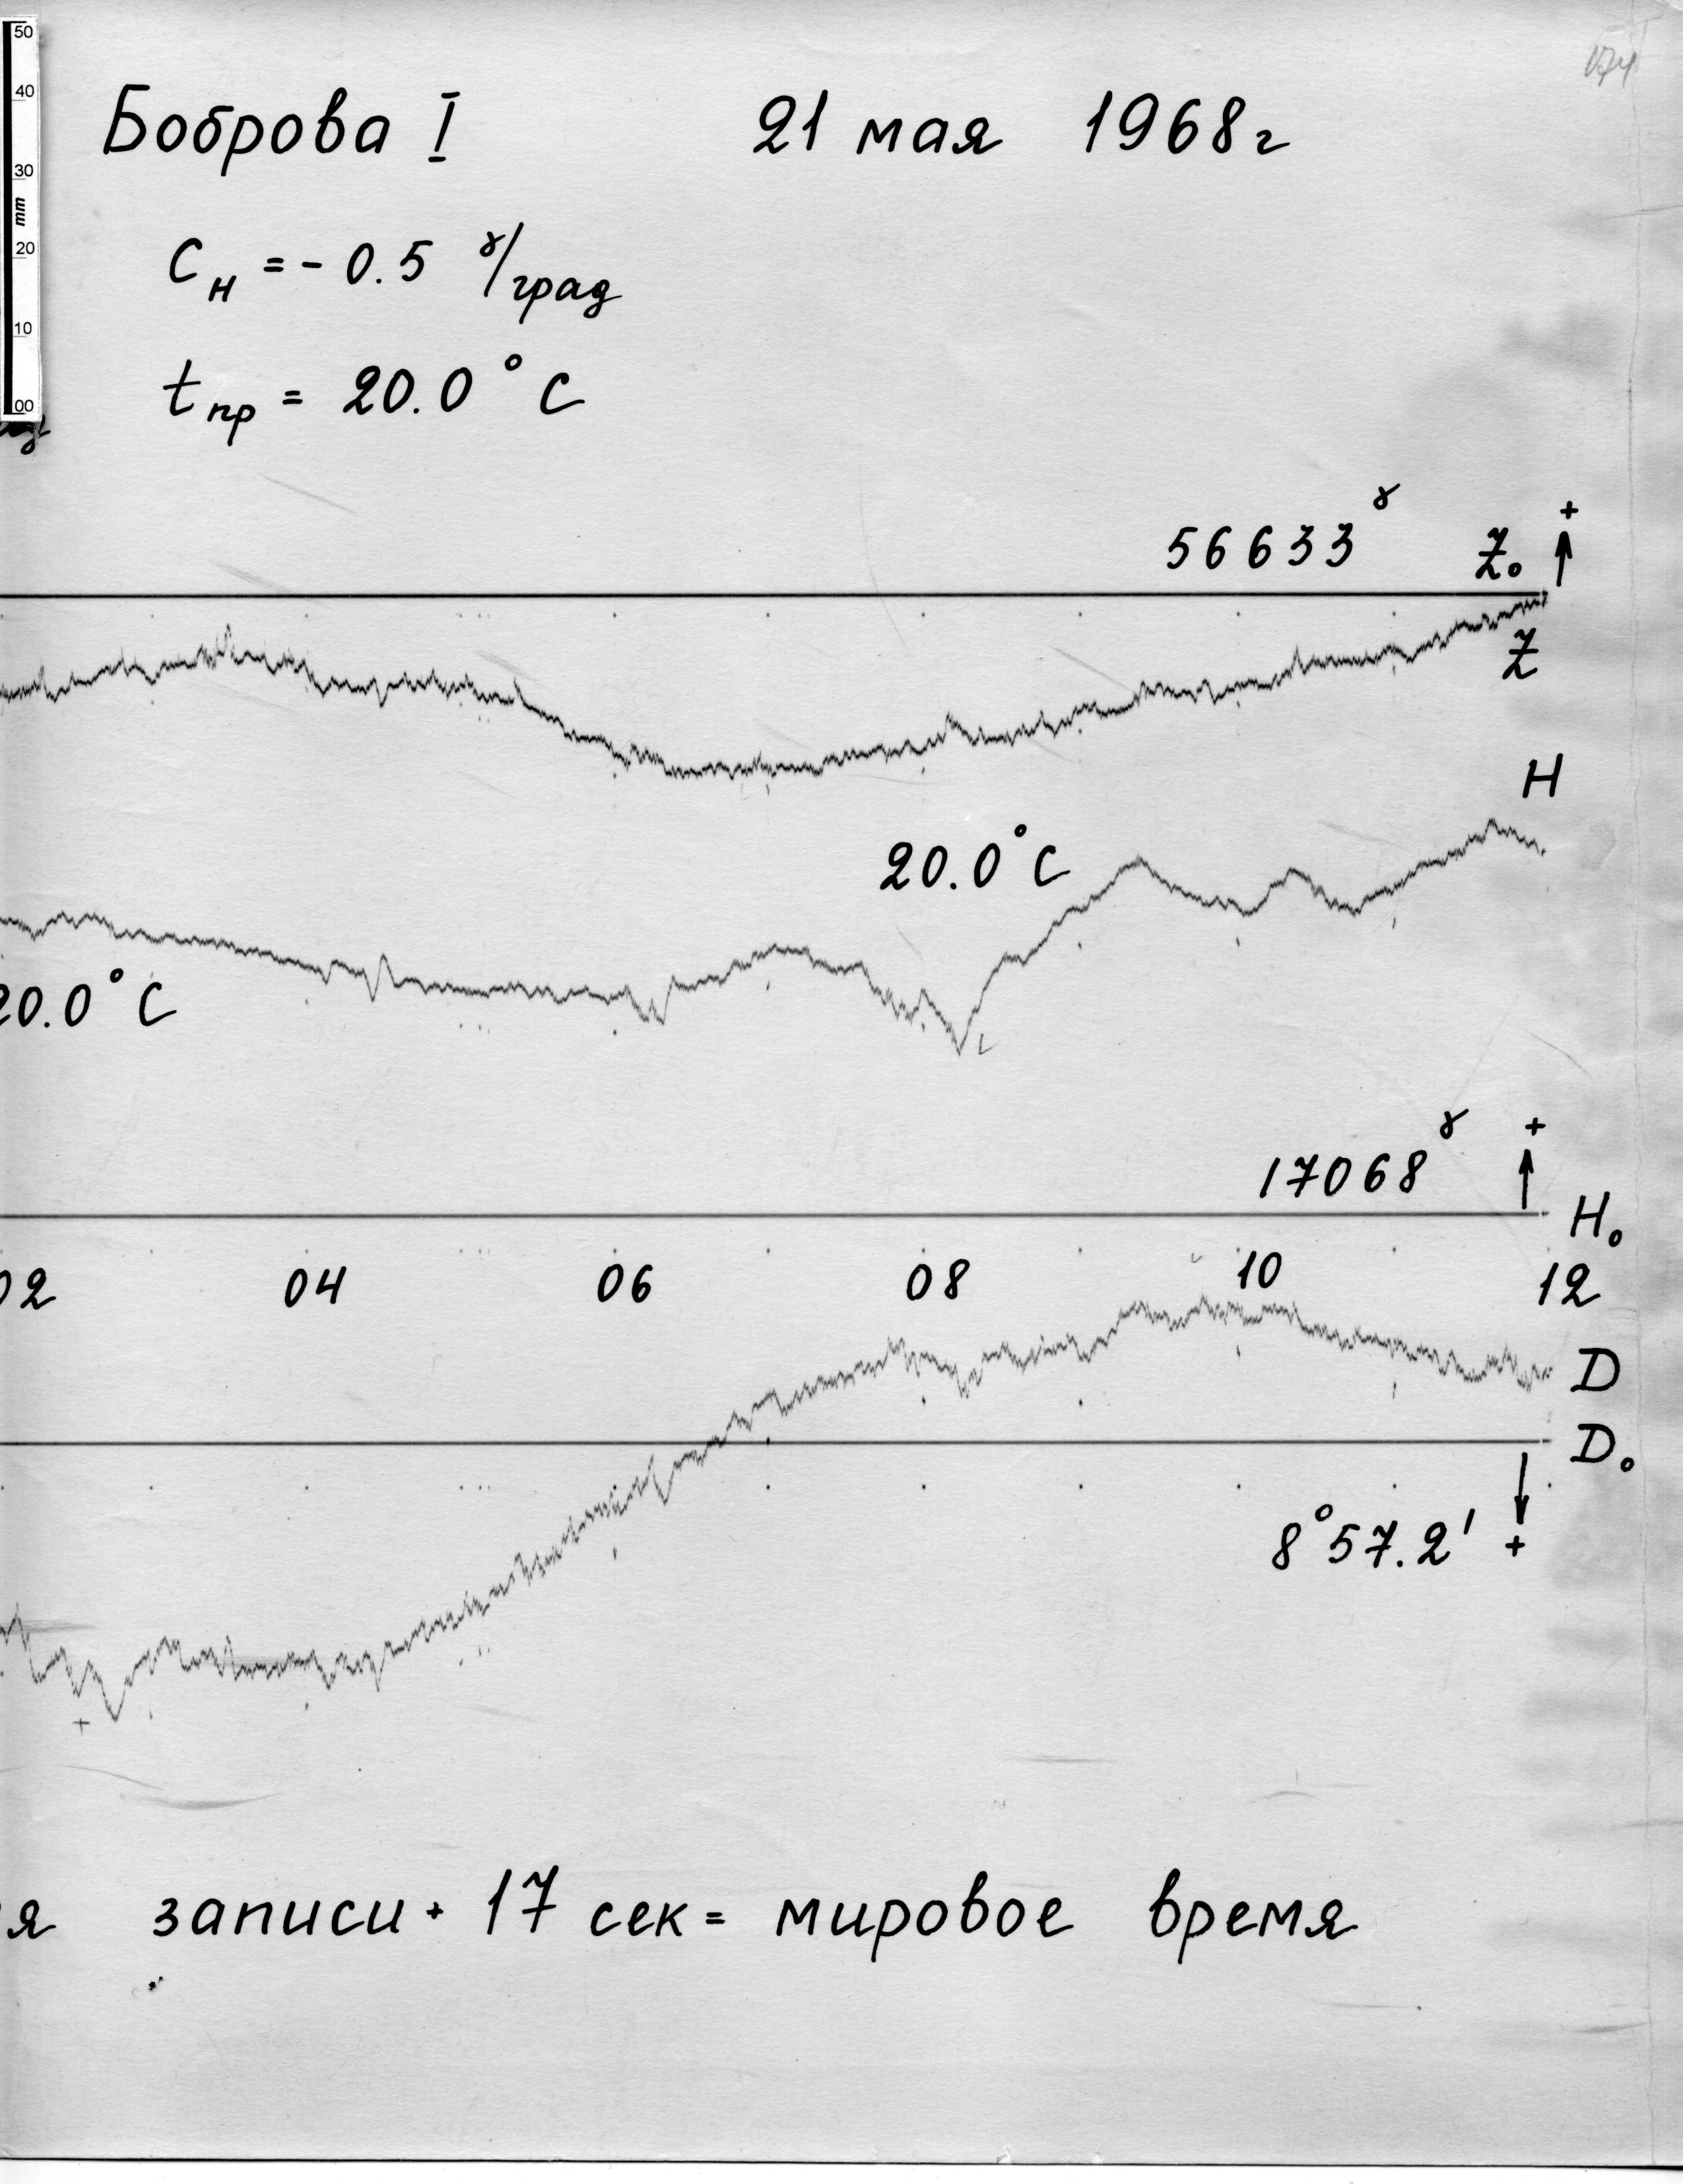 50
40
30
mm
20
10
00
Боброва I 21 мая 1968г
C н = - 0.5 γ/град
t пр = 20.0 °C
56633 γ Z₀ +
Z
H
20.0°C
20.0°C
17068 γ +
H₀
02 04 06 08 10 12
D
D₀
8°57.2' +
я записи + 17 сек = мировое время